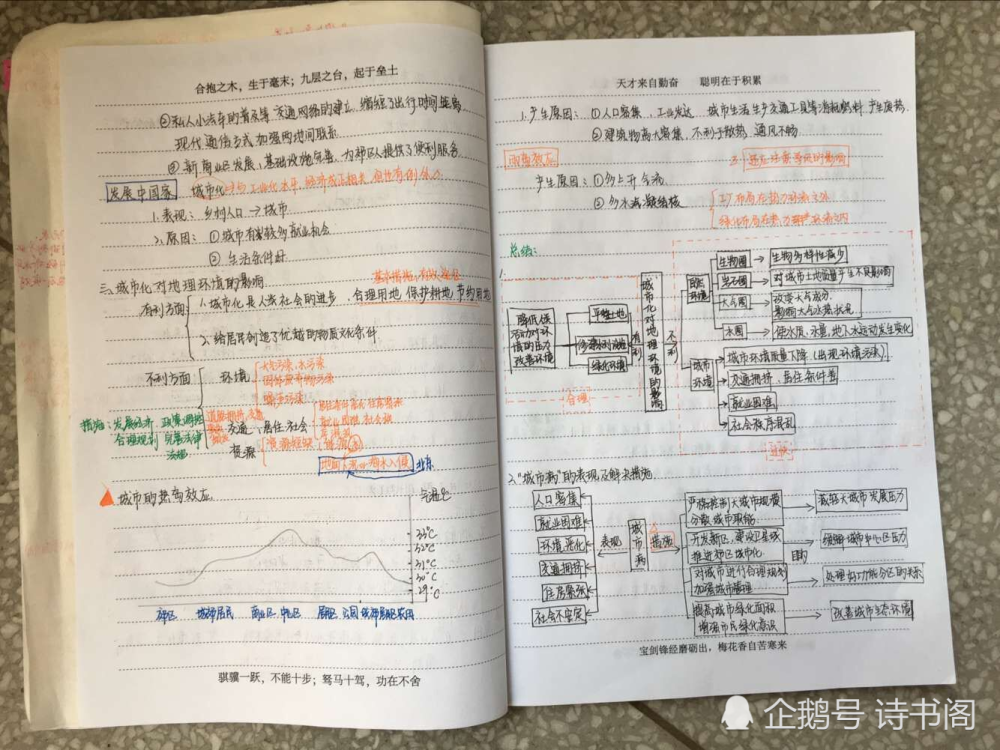 合抱之木，生于毫末；九层之台，起于垒土
②私人小汽车的普及等 交通网络的建立 缩短了出行时间距离
现代通信方式加强两地间联系
③新商业区发展，基础设施完善，为郊区人提供了便利服务
发展中国家 城市化
1.表现：乡村人口→城市
2.原因：①城市有较多就业机会
②生活条件好
三、城市化对地理环境的影响
有利方面 1.城市化是人类社会的进步 合理用地 保护耕地 节约用地
2.给居民创造了优越的物质文化条件
不利方面 环境 大气污染、水污染
固体废弃物污染
噪声污染
措施：发展经济 政策调控
合理规划 完善法律
法治
交通、居住、社会
就业困难 社会
资源
北京
城市的热岛效应 气温℃
33℃
32℃
31℃
30℃
29℃
郊区 城郊居民 商业区 中心区 居民区 公园 城郊居民区 农田
骐骥一跃，不能十步；驽马十驾，功在不舍
天才来自勤奋 聪明在于积累
1.产生原因：①人口密集，工业发达 城市生活生产交通工具等消耗燃料 产生废热
②建筑物高大密集，不利于散热 通风不畅
雨岛效应
产生原因：①多上升气流
②多水汽凝结核
总结：
1.
降低人类活动对环境的压力 改善环境
平整土地
绿化环境
有利
城市化对地理环境的影响
不利
自然环境
生物圈→生物多样性减少
岩石圈→对城市土地质量产生不良影响
大气圈→改变大气成分，影响大气水热状况
水圈→使水质、水量、地下水运动发生变化
城市环境
城市环境质量下降（出现环境污染）
交通拥挤，居住条件差
就业困难
社会秩序混乱
2."城市病"的表现及解决措施
人口密集
就业困难
环境恶化
交通拥挤
住房紧张
社会不安定
表现
城市病
措施
严格控制大城市规模 分散城市职能→减轻大城市发展压力
开发新区，建设卫星城 推进郊区城市化→缓解城市中心区压力
目的
对城市进行合理规划 加强城市管理→处理好功能分区的关系
提高城市绿化面积 增强市民绿化意识→改善城市生态环境
宝剑锋经磨砺出，梅花香自苦寒来
企鹅号 诗书阁